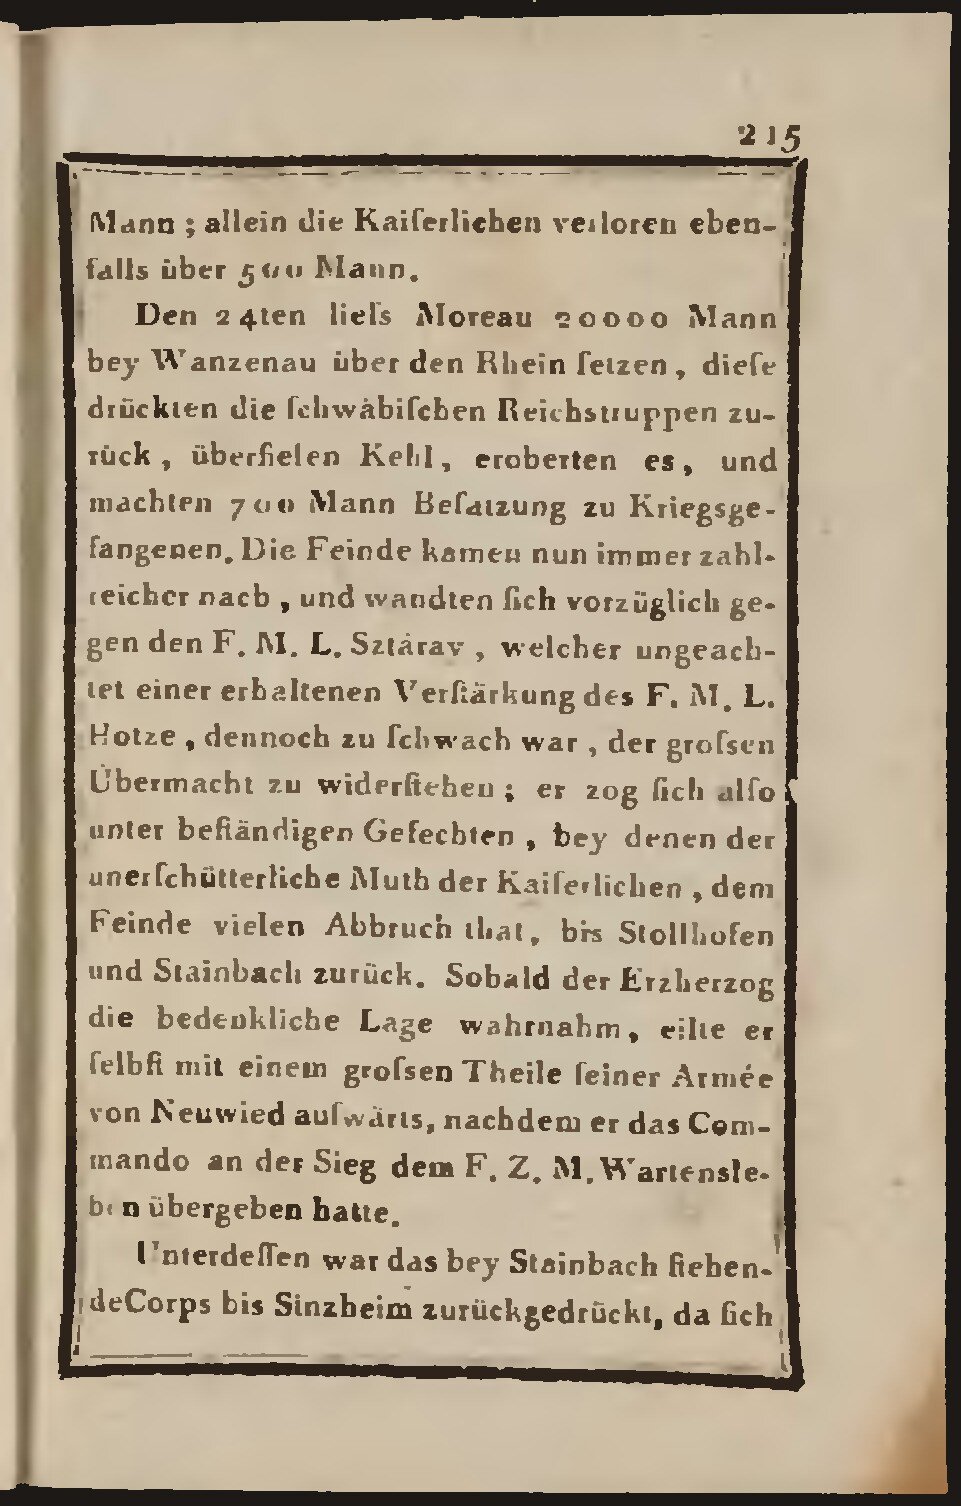 215
Mann ; allein die Kaiſerlichen verloren eben-
falls über 500 Mann.
Den 24ten lieſs Moreau 20000 Mann
bey Wanzenau über den Rhein ſetzen, dieſe
drückten die ſchwäbiſchen Reichstruppen zu-
rück, überfielen Kehl, eroberten es, und
machten 700 Mann Beſatzung zu Kriegsge-
fangenen. Die Feinde kamen nun immer zahl-
reicher nach, und wandten ſich vorzüglich ge-
gen den F. M. L. Sztáray, welcher ungeach-
tet einer erhaltenen Verſtärkung des F. M. L.
Hotze, dennoch zu ſchwach war, der groſsen
Übermacht zu widerſtehen; er zog ſich alſo
unter beſtändigen Gefechten, bey denen der
unerſchütterliche Muth der Kaiſerlichen, dem
Feinde vielen Abbruch that, bis Stollhofen
und Stainbach zurück. Sobald der Erzherzog
die bedenkliche Lage wahrnahm, eilte er
ſelbſt mit einem groſsen Theile ſeiner Armée
von Neuwied aufwärts, nachdem er das Com-
mando an der Sieg dem F. Z. M. Wartensle-
ben übergeben hatte.
Unterdeſſen war das bey Stainbach ſtehen-
de Corps bis Sinzheim zurückgedrückt, da ſich